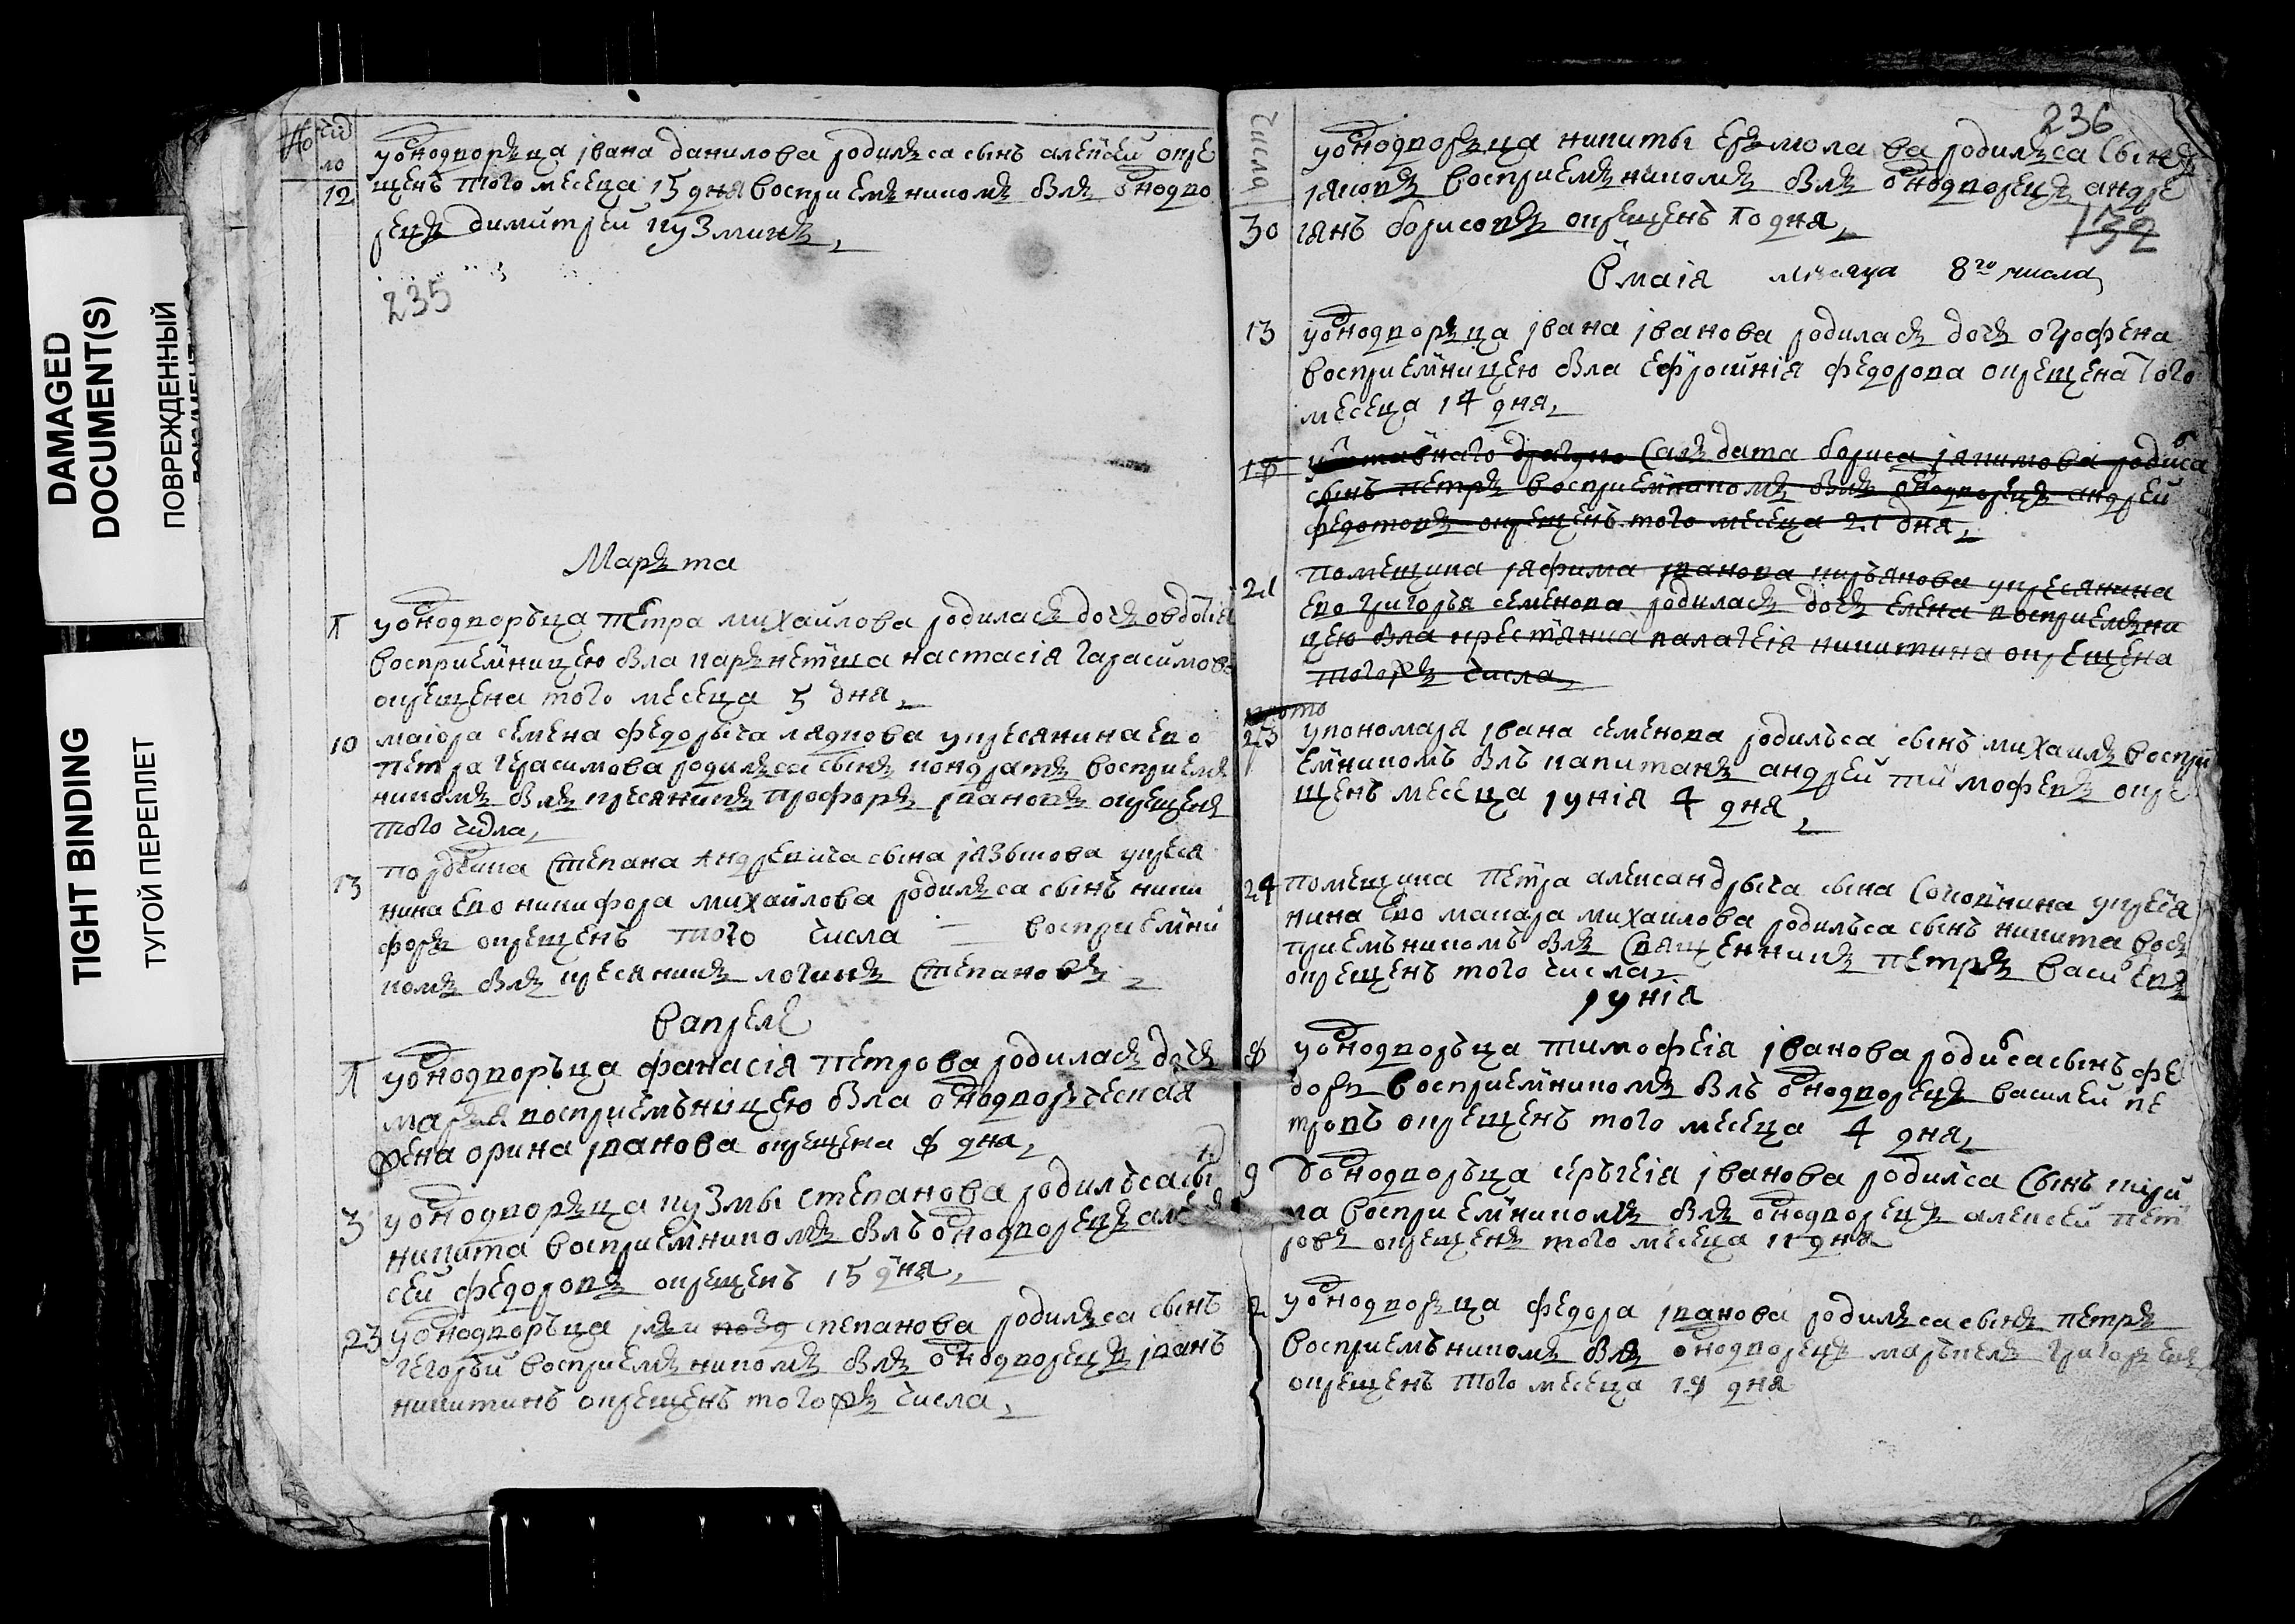 DAMAGED
DOCUMENT(S)
ПОВРЕЖДЕННЫЙ
TIGHT BINDING
ТУГОЙ ПЕРЕПЛЕТ
число
12
уоднодворъца івана данилова родилъса сынъ алеѯей окре
щенъ того месеца 15 дня восприемъникомъ былъ однодво
рецъ димитреи кузминъ
235
Маръта
уоднодворъца петра михаилова родиласъ дочъ овдотия
восприемницею была настасія гарасимова
окрещена того месеца 5 дня
10 маіора семена федорыча лядкова укресянина ево
петра герасимова родилъса сынъ кондратъ восприемъ
никомъ былъ кресянинъ трофоръ івановъ окрещенъ
того числа
13 степана андревича сына языкова укреся
нина ево никифора михаилова родилъса сынъ ники
форъ окрещенъ того числа восприемни
комъ былъ кресянинъ логинъ степановъ
вапреле
уоднодворъца фанасія петрова родиласъ дочъ
маръя восприемъницею была однодворъческая
жена орина іванова окрещена 8 дня
3 уоднодворъца кузмы степанова родилъса сы
никита восприемникомъ былъ однодворецъ алек
сей федоровъ окрещенъ 15 дня
23 уоднодворъца степанова родилъса сынъ
гегорьи восприемъникомъ былъ однодворецъ іванъ
никитинъ окрещенъ тогожъ числа
числа
236
уоднодворъца никиты еръмолаева родилъса сынъ
яковъ восприемъникомъ былъ однодворецъ андре
30 янъ борисовъ окрещенъ дня
132
Вмаія месяца 8го числа
13 уоднодворъца івана іванова родиласъ дочъ огрофена
восприемницею была ефросинія федорова окрещена того
месеца 14 дня
18 салъдата бориса якимова родиса
сынъ петръ восприемникомъ былъ однодворецъ андрей
федотовъ окрещенъ того месеца 21 дня
21 помещика яфима іванова кирьянова укресянина
ево григорья семенова родиласъ дочъ елена восприемъни
цею была крестяниа палагея никитина окрещена
тогожъ числа
23 упономаря івана семенова родилъса сынъ михаилъ воспри
емникомъ былъ капитанъ андрей тимофевъ окре
щенъ месеца іунія 4 дня
24 помещика петра александрыча сына укреся
нина ево макара михаилова родилъса сынъ никита восъ
приемъникомъ былъ священникъ петръ васи евъ
окрещенъ того числа
іунія
8 уоднодворъца тимофеія іванова родиса сынъ фе
доръ восприемникомъ былъ однодворецъ василей пе
тровъ окрещенъ того месеца 4 дня
9 уоднодворъца серъгеія іванова родилса сынъ кири
ла восприемникомъ былъ однодворецъ алексей пет
ровъ окрещенъ того месеца 11 дня
уоднодворъца федора іванова родилъса сынъ петръ
восприемъникомъ былъ однодворецъ маръкелъ григоръевъ
окрещенъ того месеца дня